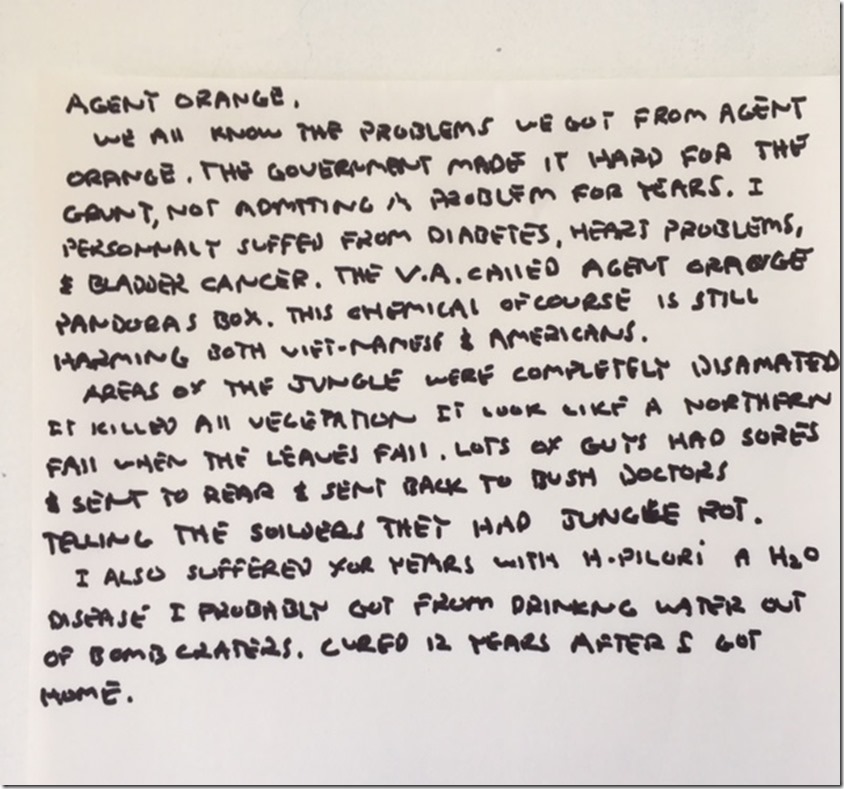 AGENT ORANGE.
WE ALL KNOW THE PROBLEMS WE GOT FROM AGENT
ORANGE. THE GOVERNMENT MADE IT HARD FOR THE
GRUNT, NOT ADMITTING A PROBLEM FOR YEARS. I
PERSONNALY SUFFED FROM DIABETES, HEART PROBLEMS,
& BLADDER CANCER. THE V.A. CALLED AGENT ORANGE
PANDORAS BOX. THIS CHEMICAL OFCOURSE IS STILL
HARMING BOTH VIET-NAMESE & AMERICANS.
AREAS OF THE JUNGLE WERE COMPLETELY DISAMATED
IT KILLED ALL VEGETATION IT LOOK LIKE A NORTHERN
FALL WHEN THE LEAVES FALL. LOTS OF GUYS HAD SORES
& SENT TO REAR & SENT BACK TO BUSH DOCTORS
TELLING THE SOILDERS THEY HAD JUNGLE ROT.
I ALSO SUFFERED FOR YEARS WITH H-PILORI A H2O
DISEASE I PROBABLY GOT FROM DRINKNG WATER OUT
OF BOMB CRATERS. CURED 12 YEARS AFTER I GOT
HOME.